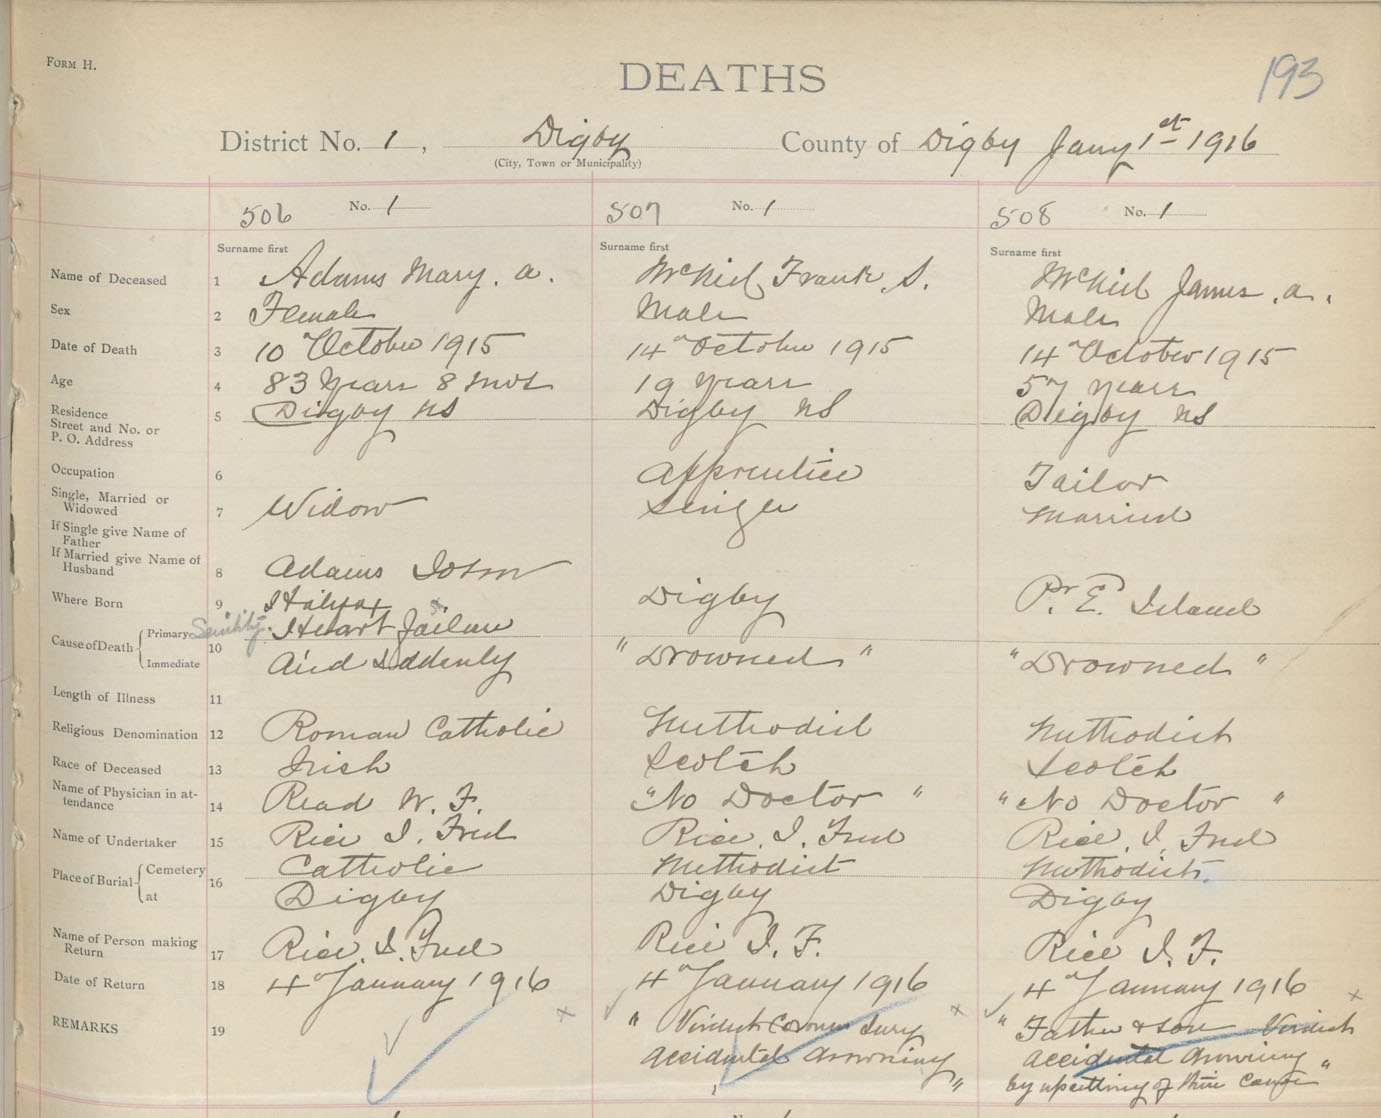 FORM H.
DEATHS
193
District No. 1, Digby County of Digby Jany 1st 1916
(City, Town or Municipality)
506 No. 1 507 No. 1 508 No. 1
Surname first Surname first Surname first
Name of Deceased 1 Adams Mary. A. McNiel Frank. S. McNiel James. A.
Sex 2 Female Male Male
Date of Death 3 10" October 1915 14" October 1915 14" October 1915
Age 4 83 Years 8 mos 19 years 57 years
Residence Street and No. or P. O. Address 5 Digby NS Digby NS Digby NS
Occupation 6 Apprentice Tailor
Single, Married or Widowed 7 Widow Single Married
If Single give Name of Father
If Married give Name of Husband 8 Adams John
Where Born 9 Halifax Digby Pr. E. Island
Cause of Death Primary Senility. 10 Heart Failure
Immediate Died Suddenly "Drowned" "Drowned"
Length of Illness 11
Religious Denomination 12 Roman Catholic Methodist Methodist
Race of Deceased 13 Irish Scotch Scotch
Name of Physician in attendance 14 Read W. F. "No Doctor" "No Doctor"
Name of Undertaker 15 Rice I. Fred Rice. I. Fred Rice. I. Fred
Place of Burial Cemetery 16 Catholic Methodist Methodist.
at Digby Digby Digby
Name of Person making Return 17 Rice. I. Fred Rice I. F. Rice I. F.
Date of Return 18 4" January 1916 4" January 1916 4" January 1916
REMARKS 19 "Verdict Coroners Jury "Father & Son Verdict
Accidental drowning" Accidental drowning
by upsetting of their canoe"